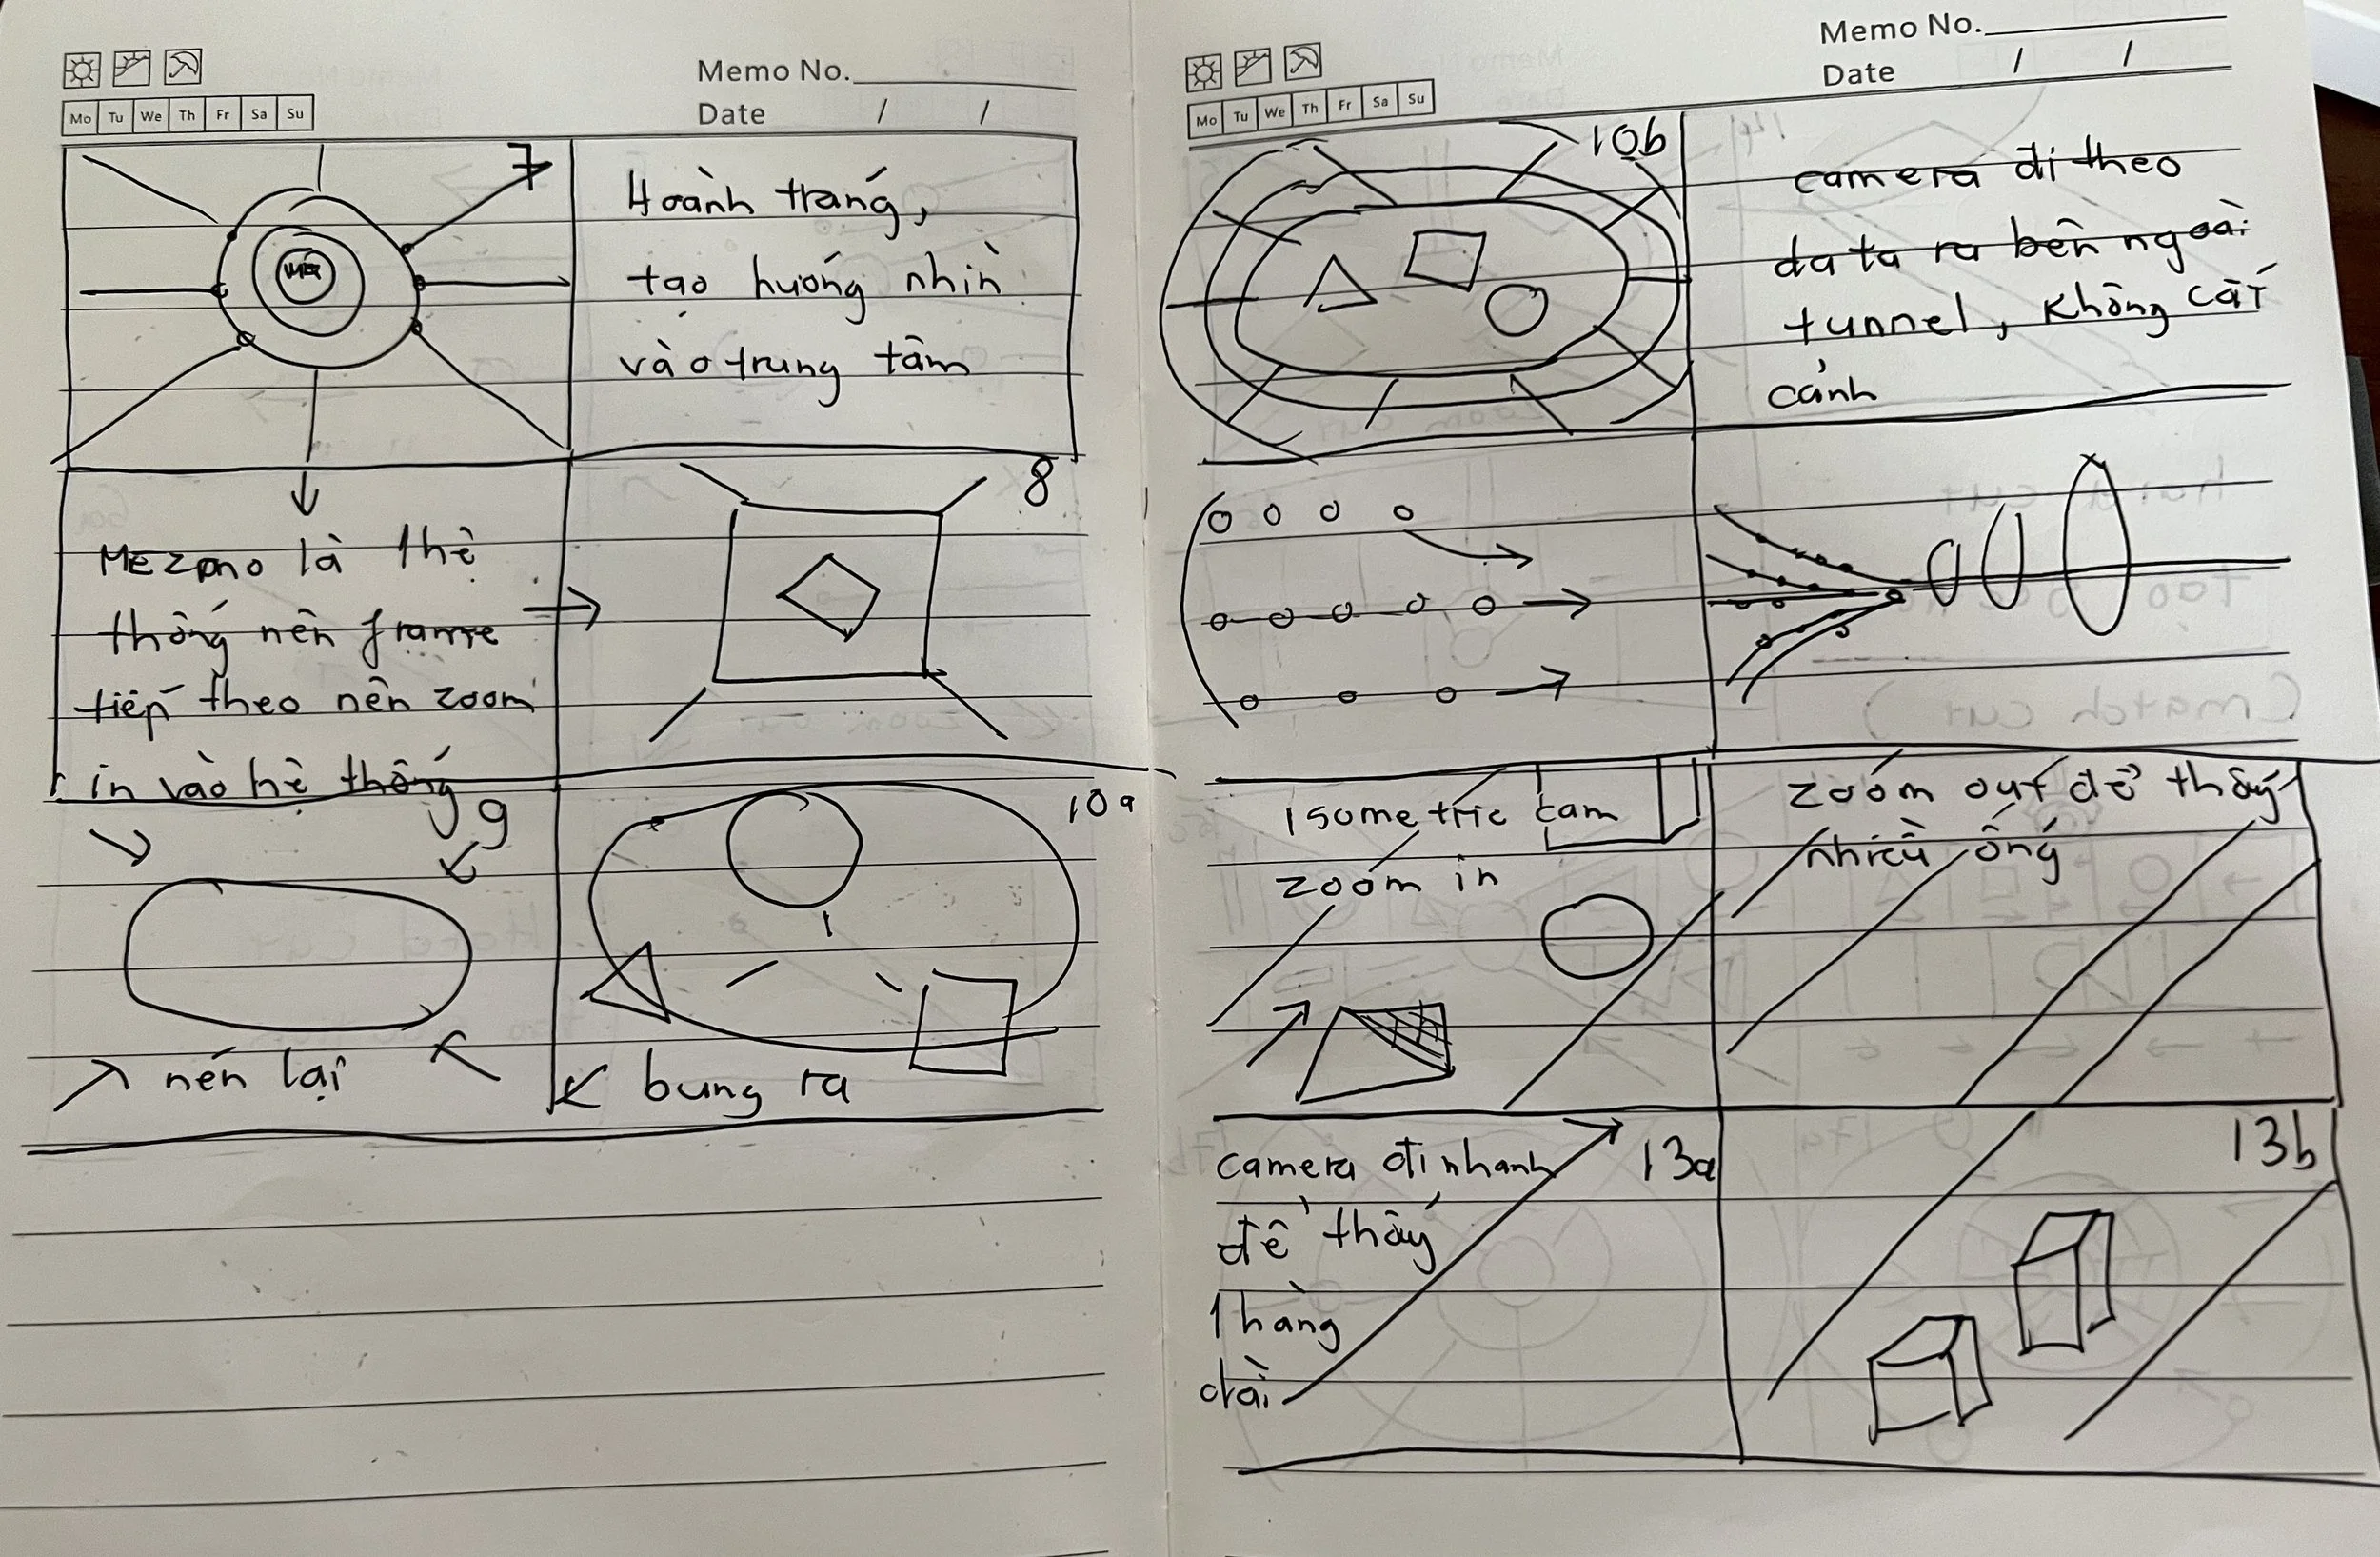 Memo No.
Mo Tu We Th Fr Sa Su
Date / /
7
Hoành tráng,
tạo hướng nhìn
vào trung tâm
8
Mezono là 1 hệ
thống nên frame
tiếp theo nên zoom
in vào hệ thống
9
nén lại
10a
bung ra
Memo No.
Date / /
Mo Tu We Th Fr Sa Su
10b
camera đi theo
data ra bên ngoài
tunnel, không cắt
cảnh
isometric cam
zoom in
zoom out để thấy
nhiều ống
13a
camera đi nhanh
để thấy
1 hàng
dài
13b